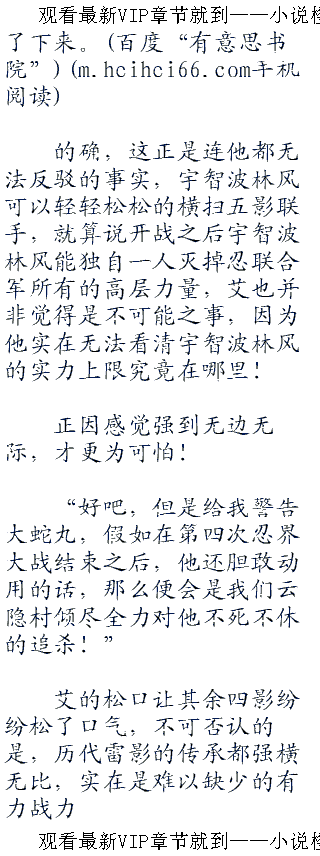 观看最新VIP章节就到——小说
了下来。(百度“有意思书
院”)(m.hcihci66.com手机
阅读)
的确，这正是连他都无
法反驳的事实，宇智波林风
可以轻轻松松的横扫五影联
手，就算说开战之后宇智波
林风能独自一人灭掉忍联合
军所有的高层力量，艾也并
非觉得是不可能之事，因为
他实在无法看清宇智波林风
的实力上限究竟在哪里！
正因感觉强到无边无
际，才更为可怕！
“好吧，但是给我警告
大蛇丸，假如在第四次忍界
大战结束之后，他还胆敢动
用的话，那么便会是我们云
隐村倾尽全力对他不死不休
的追杀！”
艾的松口让其余四影纷
纷松了口气，不可否认的
是，历代雷影的传承都强横
无比，实在是难以缺少的有
力战力
观看最新VIP章节就到——小说